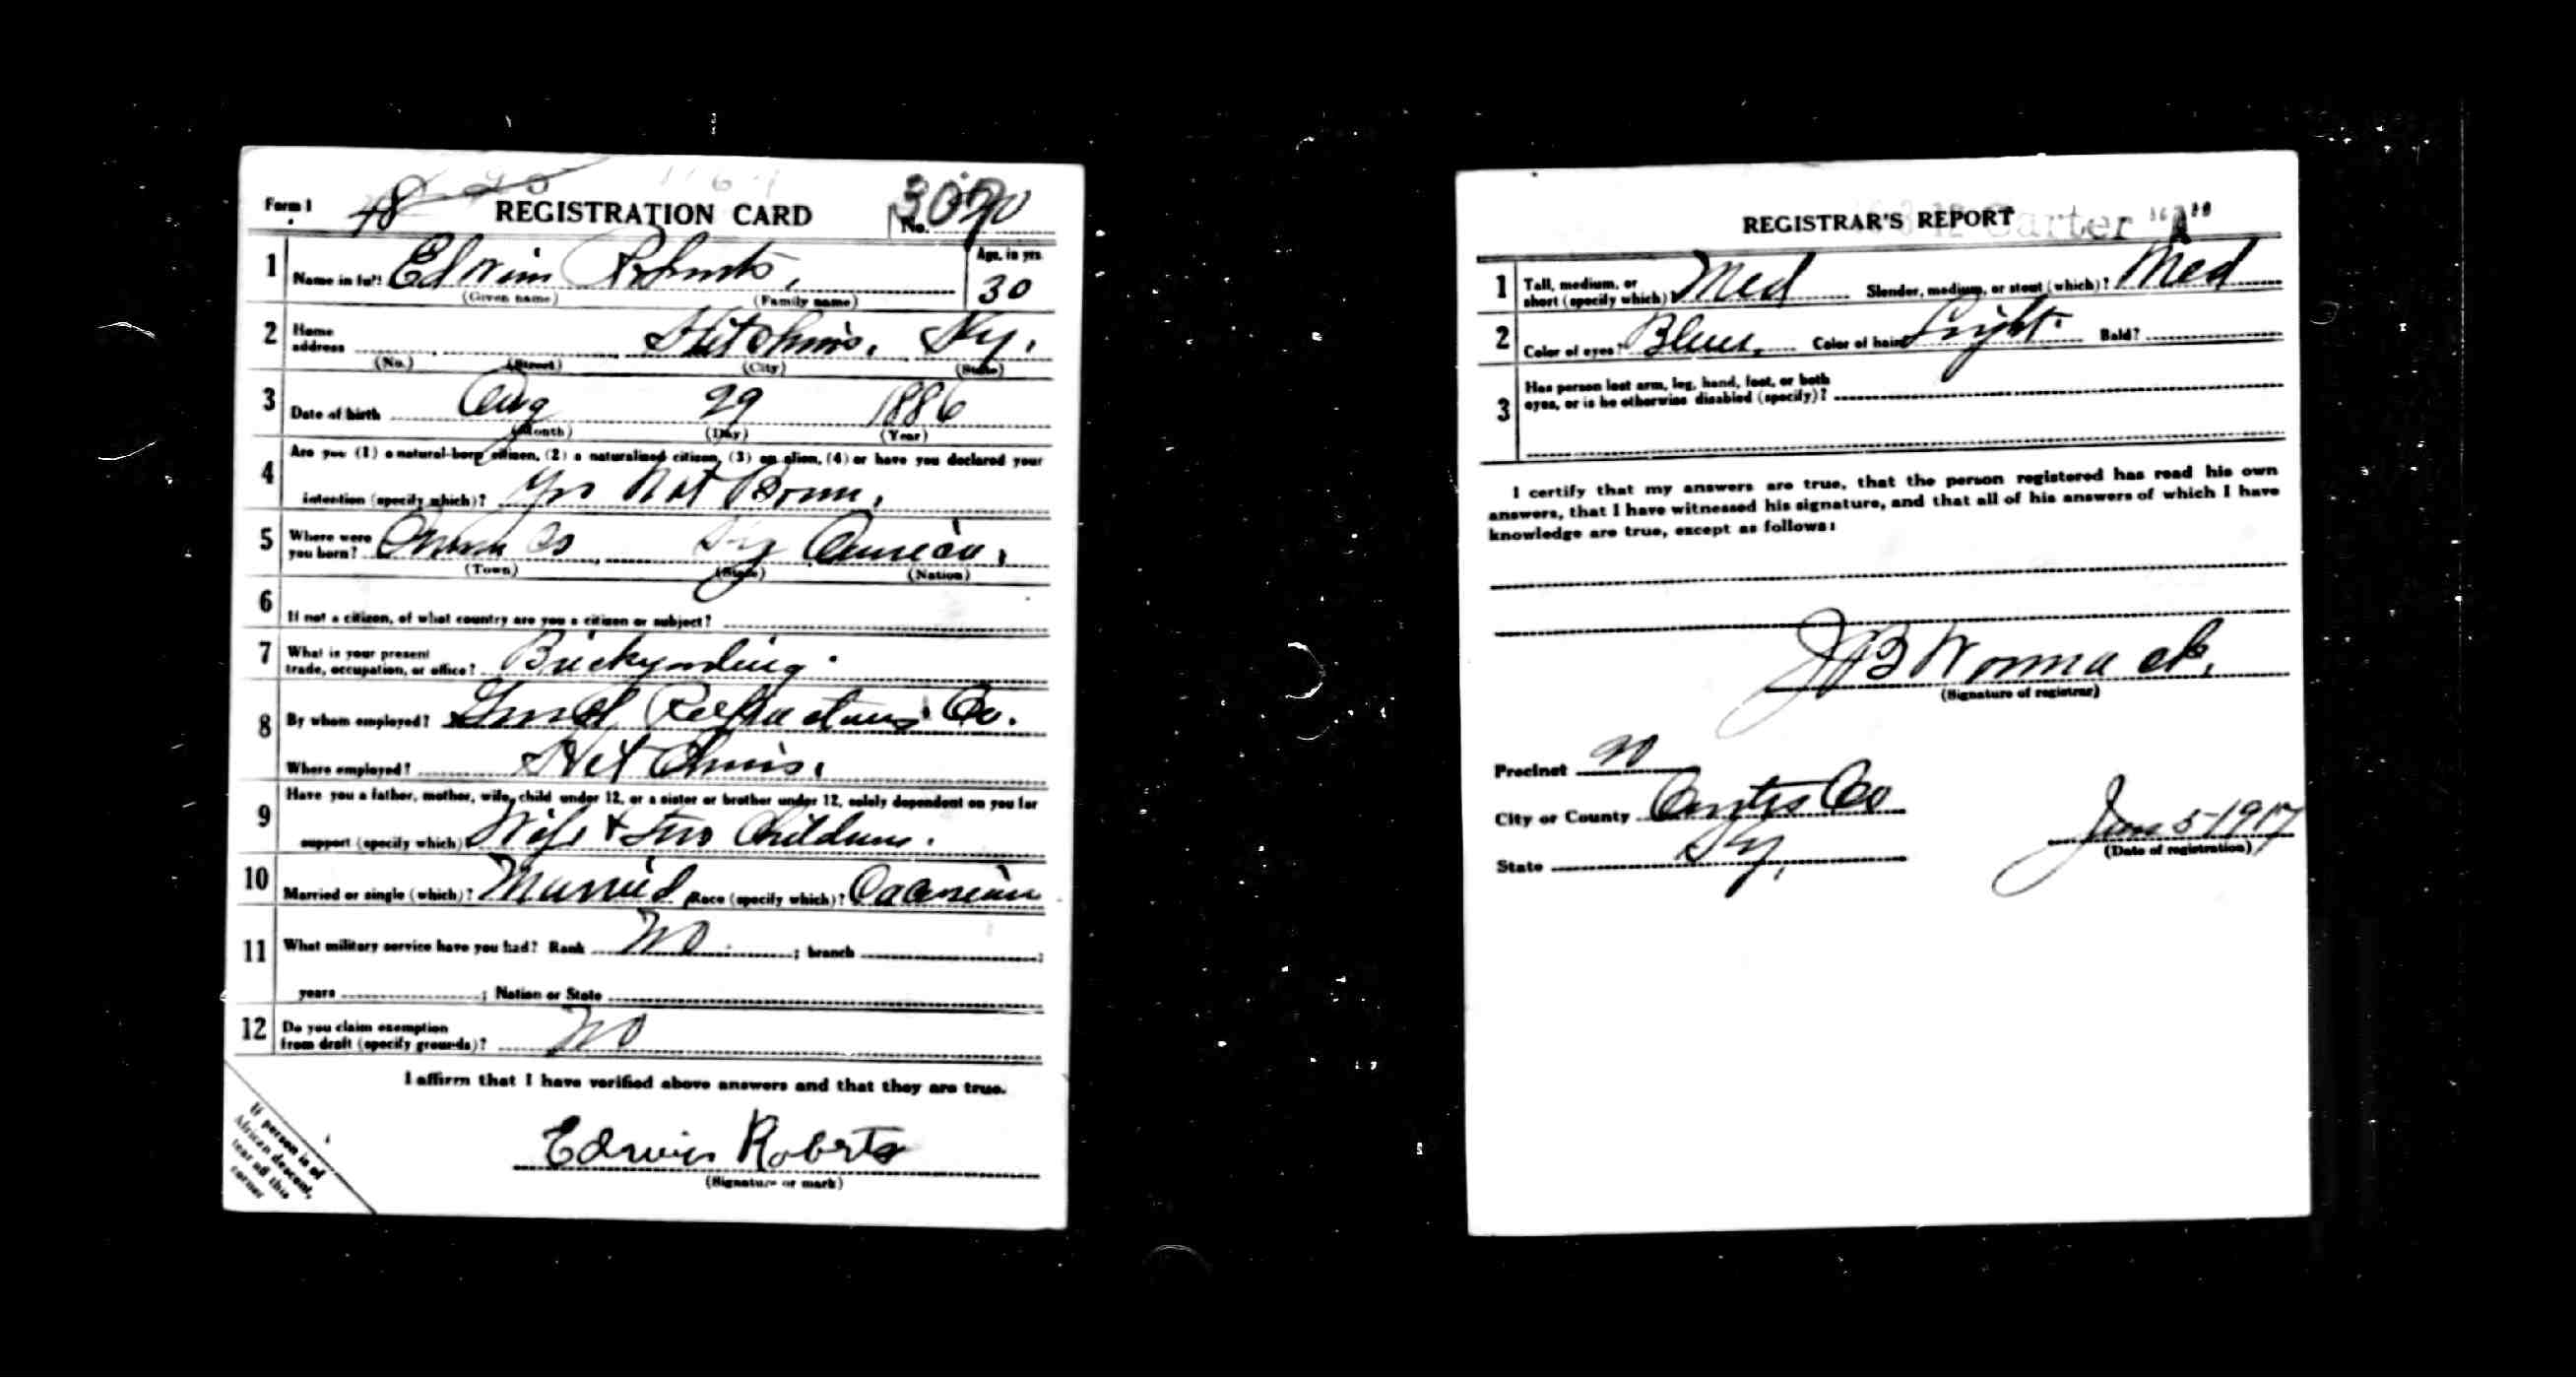 Form 1 48 REGISTRATION CARD No.
1 Name in full Edwin Roberts, Age, in yrs. 30
(Given name) (Family name)
2 Home address Hitchins, Ky.
(No.) (Street) (City) (State)
3 Date of birth Aug 29 1886
(Month) (Day) (Year)
4 Are you (1) a natural-born citizen, (2) a naturalized citizen, (3) an alien, (4) or have you declared your
intention (specify which)? Yes Nat Born,
5 Where were you born? Co Ky
(Town) (State) (Nation)
6 If not a citizen, of what country are you a citizen or subject?
7 What is your present
trade, occupation, or office?
8 By whom employed? Refractories Co.
Where employed? Hitchins.
9 Have you a father, mother, wife, child under 12, or a sister or brother under 12, solely dependent on you for
support (specify which)? Wife & two Children.
10 Married or single (which)? Married Race (specify which)?
11 What military service have you had? Rank No ; branch ;
years ; Nation or State
12 Do you claim exemption
from draft (specify grounds)? No
I affirm that I have verified above answers and that they are true.
Edwin Roberts
(Signature or mark)
If person is of
African descent,
tear off this
corner
REGISTRAR'S REPORT Carter "A"
1 Tall, medium, or
short (specify which)? Med Slender, medium, or stout (which)? Med
2 Color of eyes? Blue Color of hair? Light Bald?
3 Has person lost arm, leg, hand, foot, or both
eyes, or is he otherwise disabled (specify)?
I certify that my answers are true, that the person registered has read his own
answers, that I have witnessed his signature, and that all of his answers of which I have
knowledge are true, except as follows:
J B Womack,
(Signature of registrar)
Precinct 20
City or County Carter Co
State Ky,
June 5-1917
(Date of registration)